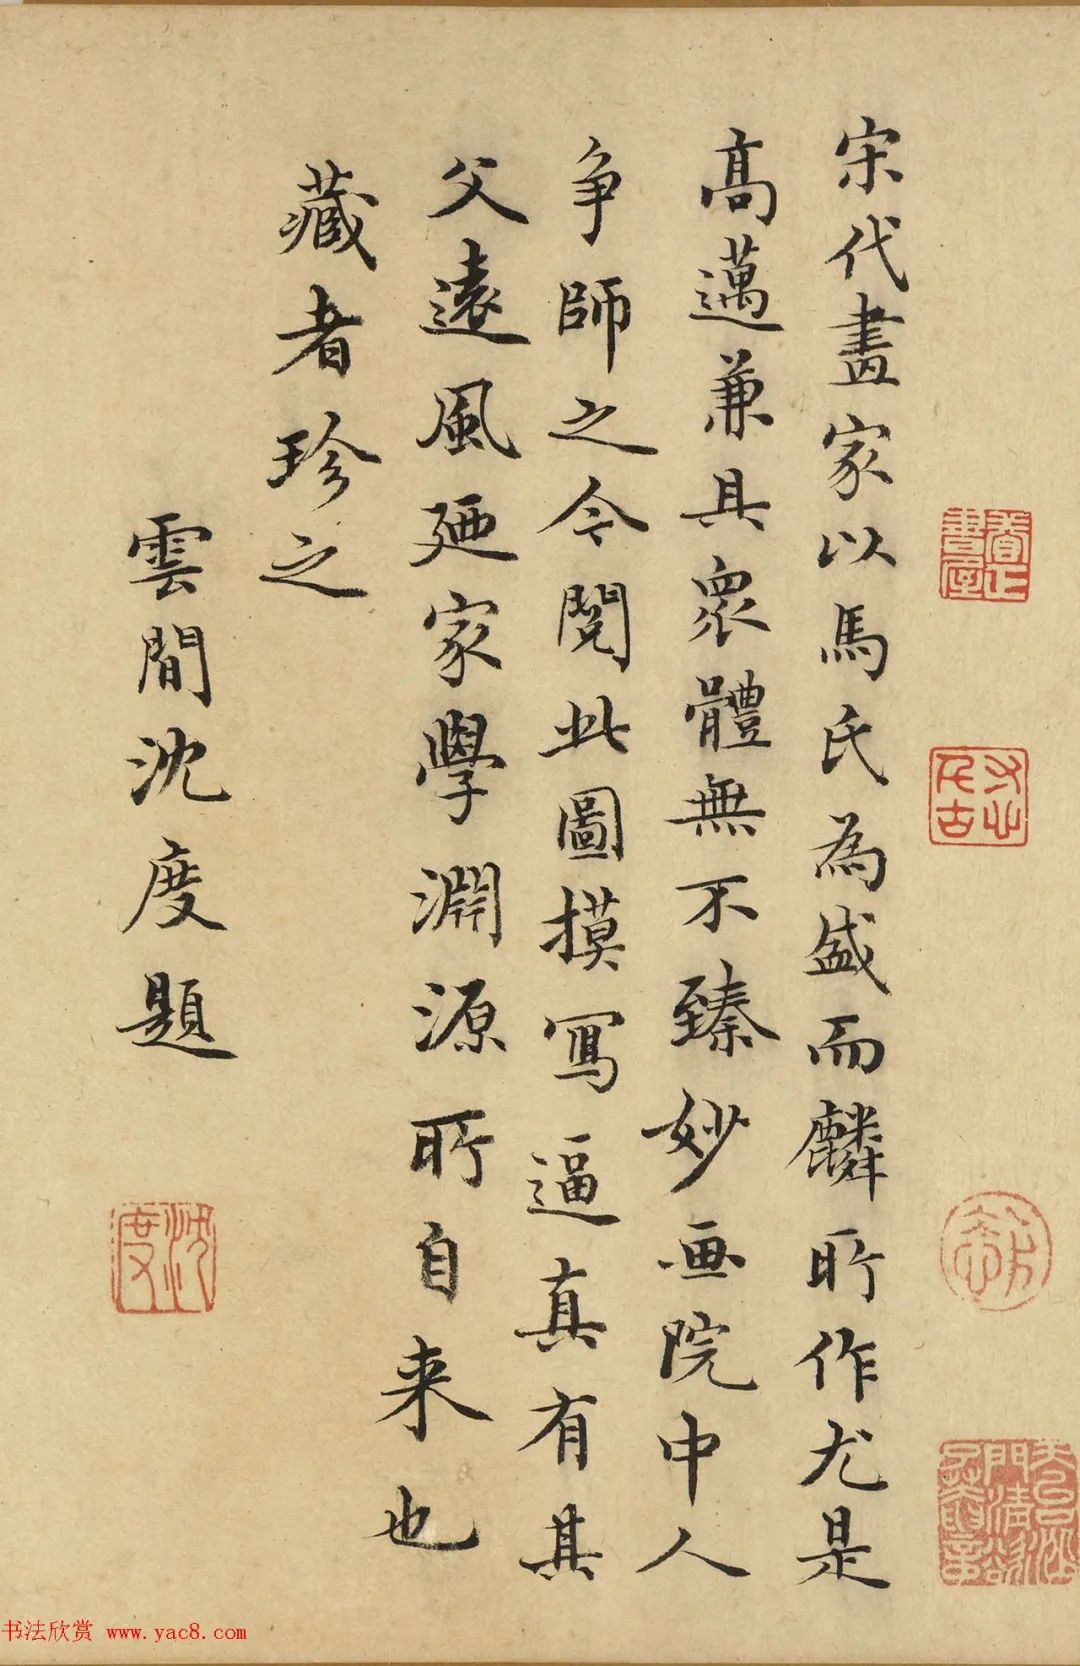 宋代畫家以馬氏為盛而麟所作尤是
高邁兼具衆體無不臻妙画院中人
争師之今閲此圖摸寫逼真有其
父遠風廼家學淵源所自来也
藏者珍之
雲間沈度題
沈度
书法欣赏 www.yac8.com